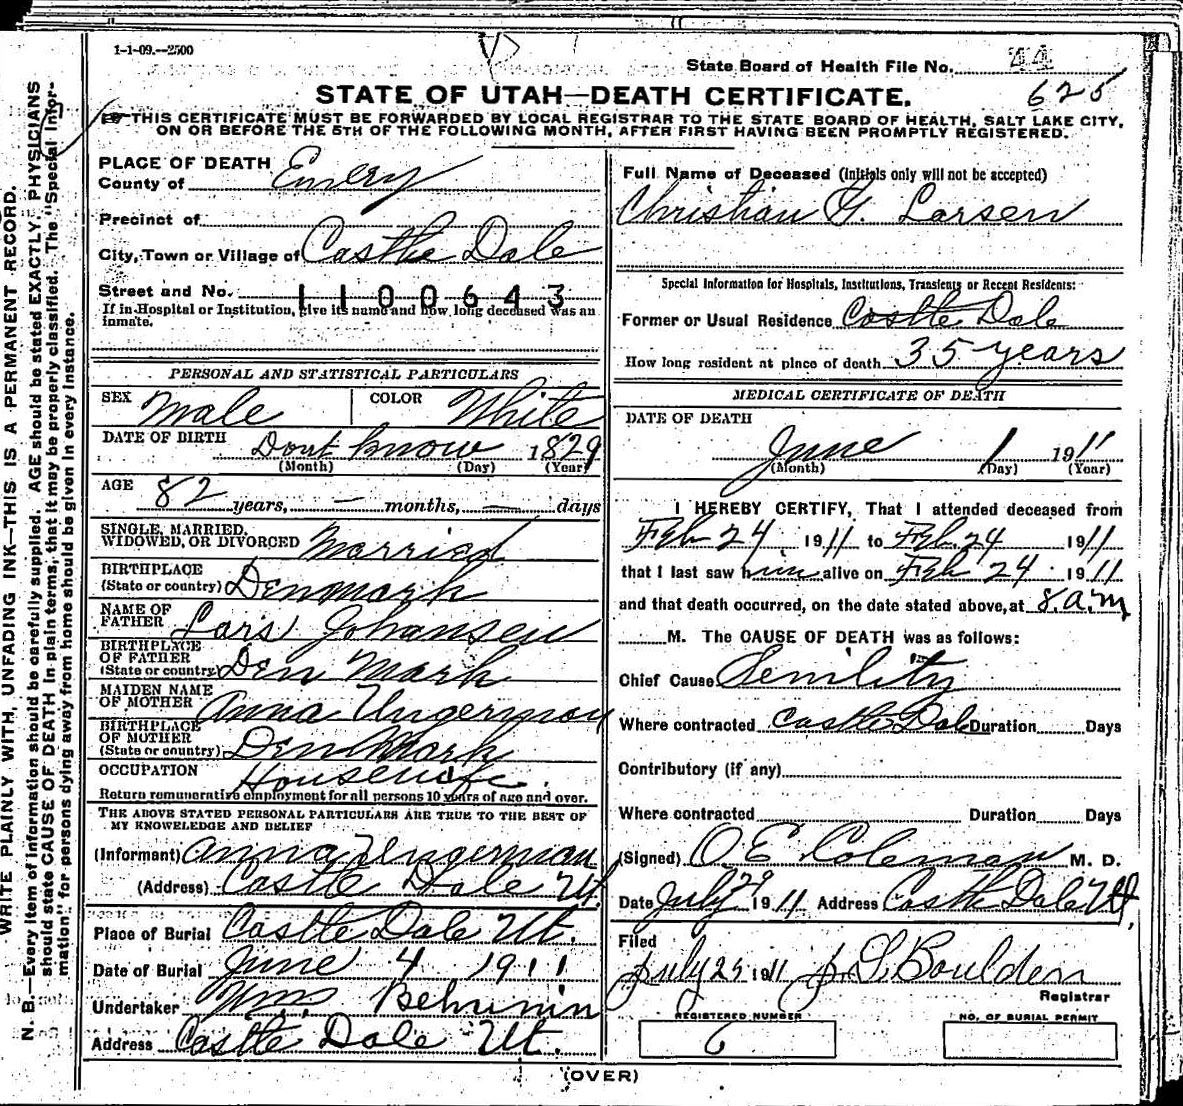 1-1-09.--2500
State Board of Health File No. 44
625
STATE OF UTAH—DEATH CERTIFICATE.
THIS CERTIFICATE MUST BE FORWARDED BY LOCAL REGISTRAR TO THE STATE BOARD OF HEALTH, SALT LAKE CITY,
ON OR BEFORE THE 5TH OF THE FOLLOWING MONTH, AFTER FIRST HAVING BEEN PROMPTLY REGISTERED.
WRITE PLAINLY WITH, UNFADING INK—THIS IS A PERMANENT RECORD.
N. B.—Every item of information should be carefully supplied. AGE should be stated EXACTLY. PHYSICIANS
should state CAUSE OF DEATH in plain terms, that it may be properly classified. The "Special Infor-
mation" for persons dying away from home should be given in every instance.
PLACE OF DEATH
County of Emery
Precinct of
City, Town or Village of Castle Dale
Street and No. 1100643
If in Hospital or Institution, give its name and how long deceased was an
inmate.
PERSONAL AND STATISTICAL PARTICULARS
SEX Male COLOR White
DATE OF BIRTH Dont know 1829
(Month) (Day) (Year)
AGE 82 years, — months, — days
SINGLE, MARRIED,
WIDOWED, OR DIVORCED Married
BIRTHPLACE
(State or country) Denmark
NAME OF
FATHER Lars Johansen
BIRTHPLACE
OF FATHER
(State or country Den Mark
MAIDEN NAME
OF MOTHER Anna
BIRTHPLACE
OF MOTHER
(State or country) Den Mark
OCCUPATION Housewife
Return remunerative employment for all persons 10 years of age and over.
THE ABOVE STATED PERSONAL PARTICULARS ARE TRUE TO THE BEST OF
MY KNOWLEDGE AND BELIEF
(Informant) Anna Ungerman
(Address) Castle Dale Ut.
Place of Burial Castle Dale Ut.
Date of Burial June 4 1911
Undertaker Wm. Behunin
Address Castle Dale Ut.
Full Name of Deceased (Initials only will not be accepted)
Christian G. Larsen
Special Information for Hospitals, Institutions, Transients or Recent Residents:
Former or Usual Residence Castle Dale
How long resident at place of death 35 years
MEDICAL CERTIFICATE OF DEATH
DATE OF DEATH
June 1 1911
(Month) (Day) (Year)
I HEREBY CERTIFY, That I attended deceased from
Feb 24, 1911 to Feb. 24 1911
that I last saw him alive on Feb 24. 1911
and that death occurred, on the date stated above, at 8. a.m
M. The CAUSE OF DEATH was as follows:
Chief Cause Senility
Where contracted Castle Dale Duration Days
Contributory (if any)
Where contracted Duration Days
(Signed) O. E. Coleman M. D.
Date July 29 1911 Address Castle Dale Ut,
Filed
July 25 1911 Boulden
Registrar
REGISTERED NUMBER
6
NO. OF BURIAL PERMIT
(OVER)